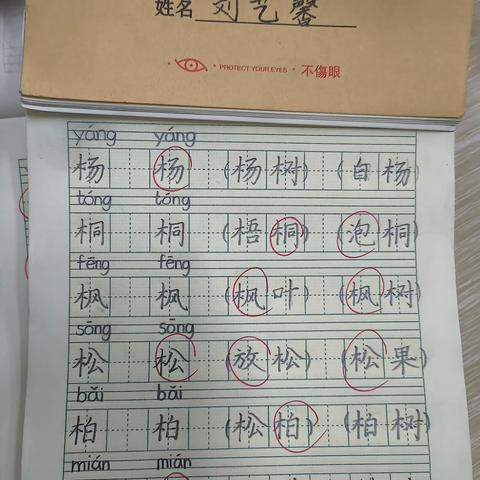 姓名 刘艺馨
PROTECT YOUR EYES 不傷眼
yáng yáng
杨 杨 (杨树) (白杨)
tóng tóng
桐 桐 (梧桐) (泡桐)
fēng fēng
枫 枫 (枫叶) (枫树)
sōng sōng
松 松 (放松) (松果)
bǎi bǎi
柏 柏 (松柏) (柏树)
mián mián